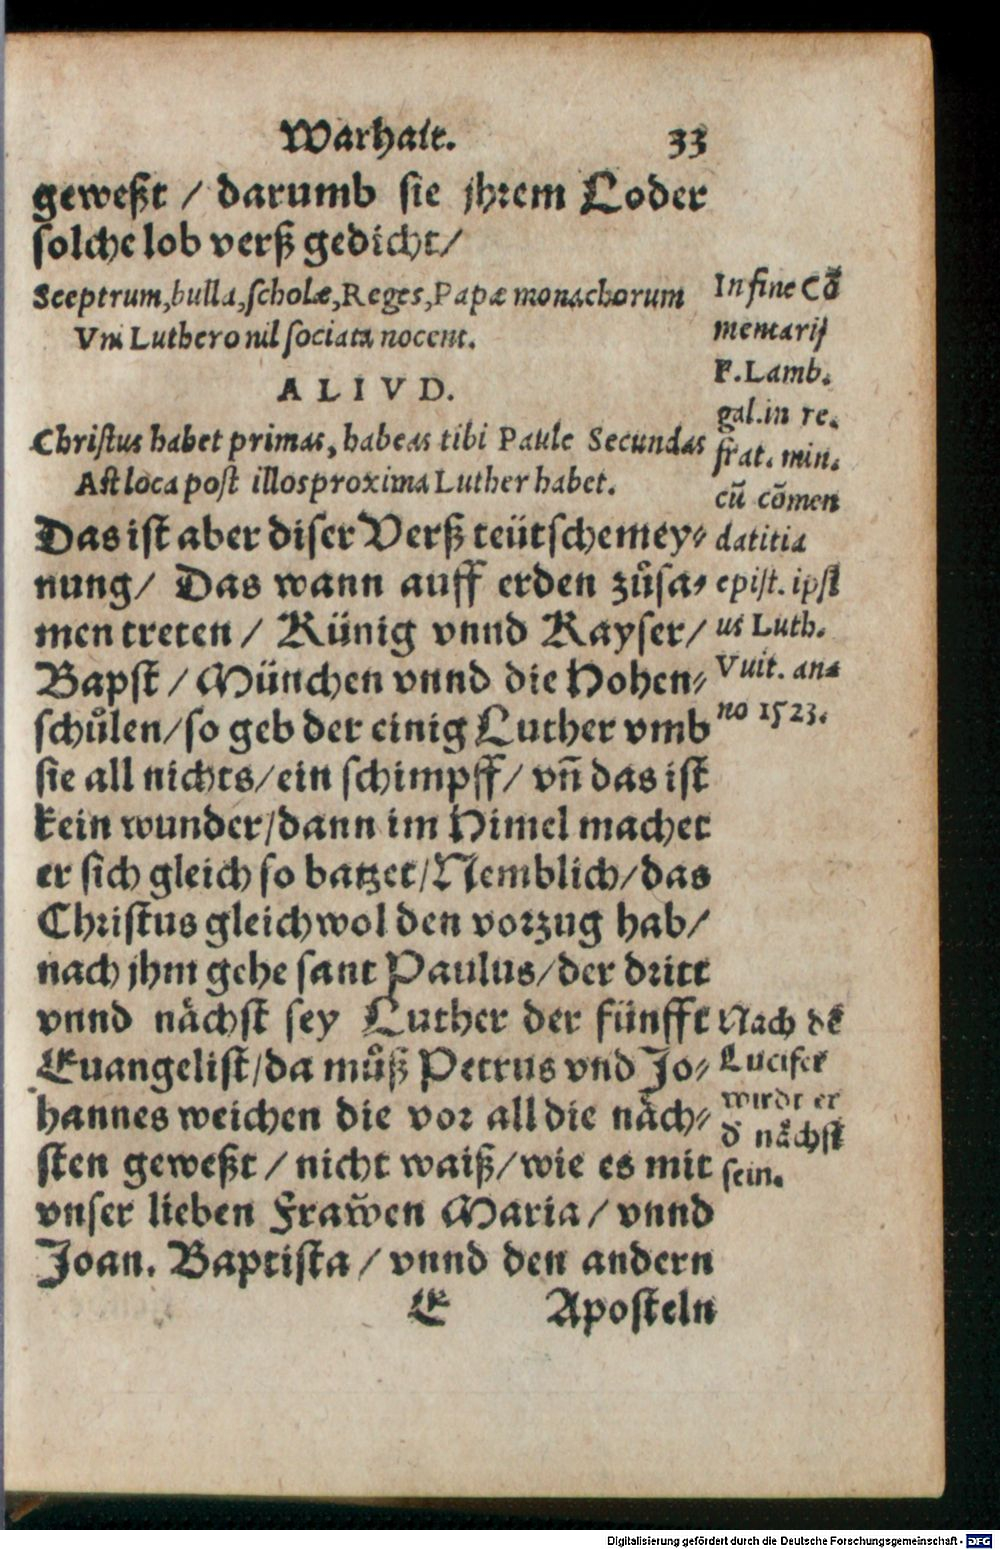 Warhait. 33
geweßt / darumb sie jhrem Loder
solche lob verß gedicht/
Sceptrum, bulla, scholæ, Reges, Papæ monachorum
Vni Luthero nil sociata nocent.
ALIVD.
Christus habet primas, habeas tibi Paule Secundas
Ast loca post illos proxima Luther habet.
Das ist aber diser Verß teütsche mey⸗
nung/ Das wann auff erden zůsa⸗
men treten / Künig vnnd Kayser/
Bapst / München vnnd die Hohen⸗
schůlen/so geb der einig Luther vmb
sie all nichts/ein schimpff/ vñ das ist
kein wunder/dann im Himel machet
er sich gleich so batzet/Nemblich/das
Christus gleichwol den vorzug hab/
nach jhm gehe sant Paulus/der dritt
vnnd nächst sey Luther der fünfft
Euangelist/da můß Petrus vnd Jo⸗
hannes weichen die vor all die näch⸗
sten geweßt / nicht waiß/wie es mit
vnser lieben Fraw̃en Maria / vnnd
Joan. Baptista / vnnd den andern
E Aposteln
In fine Cõ
mentarij
F. Lamb.
gal. in re.
frat. min.
cũ cõmen
datitia
epist. ipsi
us Luth.
Vuit. an⸗
no 1523.
Nach dẽ
Lucifer
wirdt er
d̕ nächst
sein.
Digitalisierung gefördert durch die Deutsche Forschungsgemeinschaft - DFG